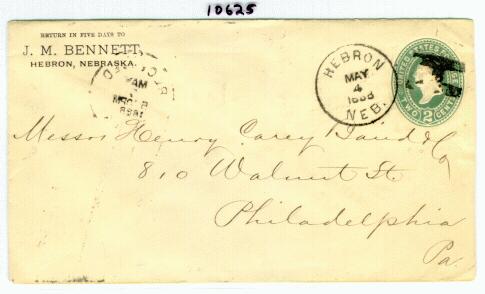 10625
RETURN IN FIVE DAYS TO
J. M. BENNETT,
HEBRON, NEBRASKA.
HEBRON
MAY
4
1888
NEB.
UNITED STATES
TWO CENTS
2
REC'D
MAY
1888
Messrs Henry Carey Baird & Co
810 Walnut St.
Philadelphia
Pa.